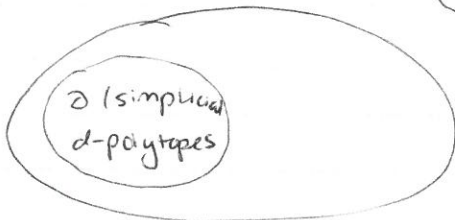 ∂ (simplicial
d-polytopes